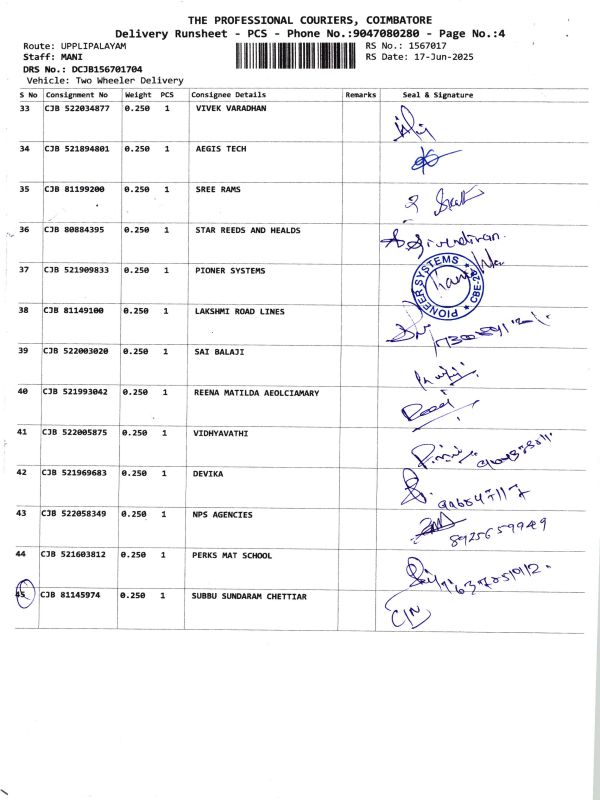 THE PROFESSIONAL COURIERS, COIMBATORE
Delivery Runsheet - PCS - Phone No.:9047080280 - Page No.:4
Route: UPPLIPALAYAM RS No.: 1567017
Staff: MANI RS Date: 17-Jun-2025
DRS No.: DCJB156701704
Vehicle: Two Wheeler Delivery
S No Consignment No Weight PCS Consignee Details Remarks Seal & Signature
33 CJB 522034877 0.250 1 VIVEK VARADHAN
34 CJB 521894801 0.250 1 AEGIS TECH
35 CJB 81199200 0.250 1 SREE RAMS
36 CJB 80884395 0.250 1 STAR REEDS AND HEALDS
37 CJB 521909833 0.250 1 PIONER SYSTEMS
PIONEER SYSTEMS
38 CJB 81149100 0.250 1 LAKSHMI ROAD LINES
39 CJB 522003020 0.250 1 SAI BALAJI
40 CJB 521993042 0.250 1 REENA MATILDA AEOLCIAMARY
41 CJB 522005875 0.250 1 VIDHYAVATHI
42 CJB 521969683 0.250 1 DEVIKA
43 CJB 522058349 0.250 1 NPS AGENCIES
8925659949
44 CJB 521603812 0.250 1 PERKS MAT SCHOOL
45 CJB 81145974 0.250 1 SUBBU SUNDARAM CHETTIAR